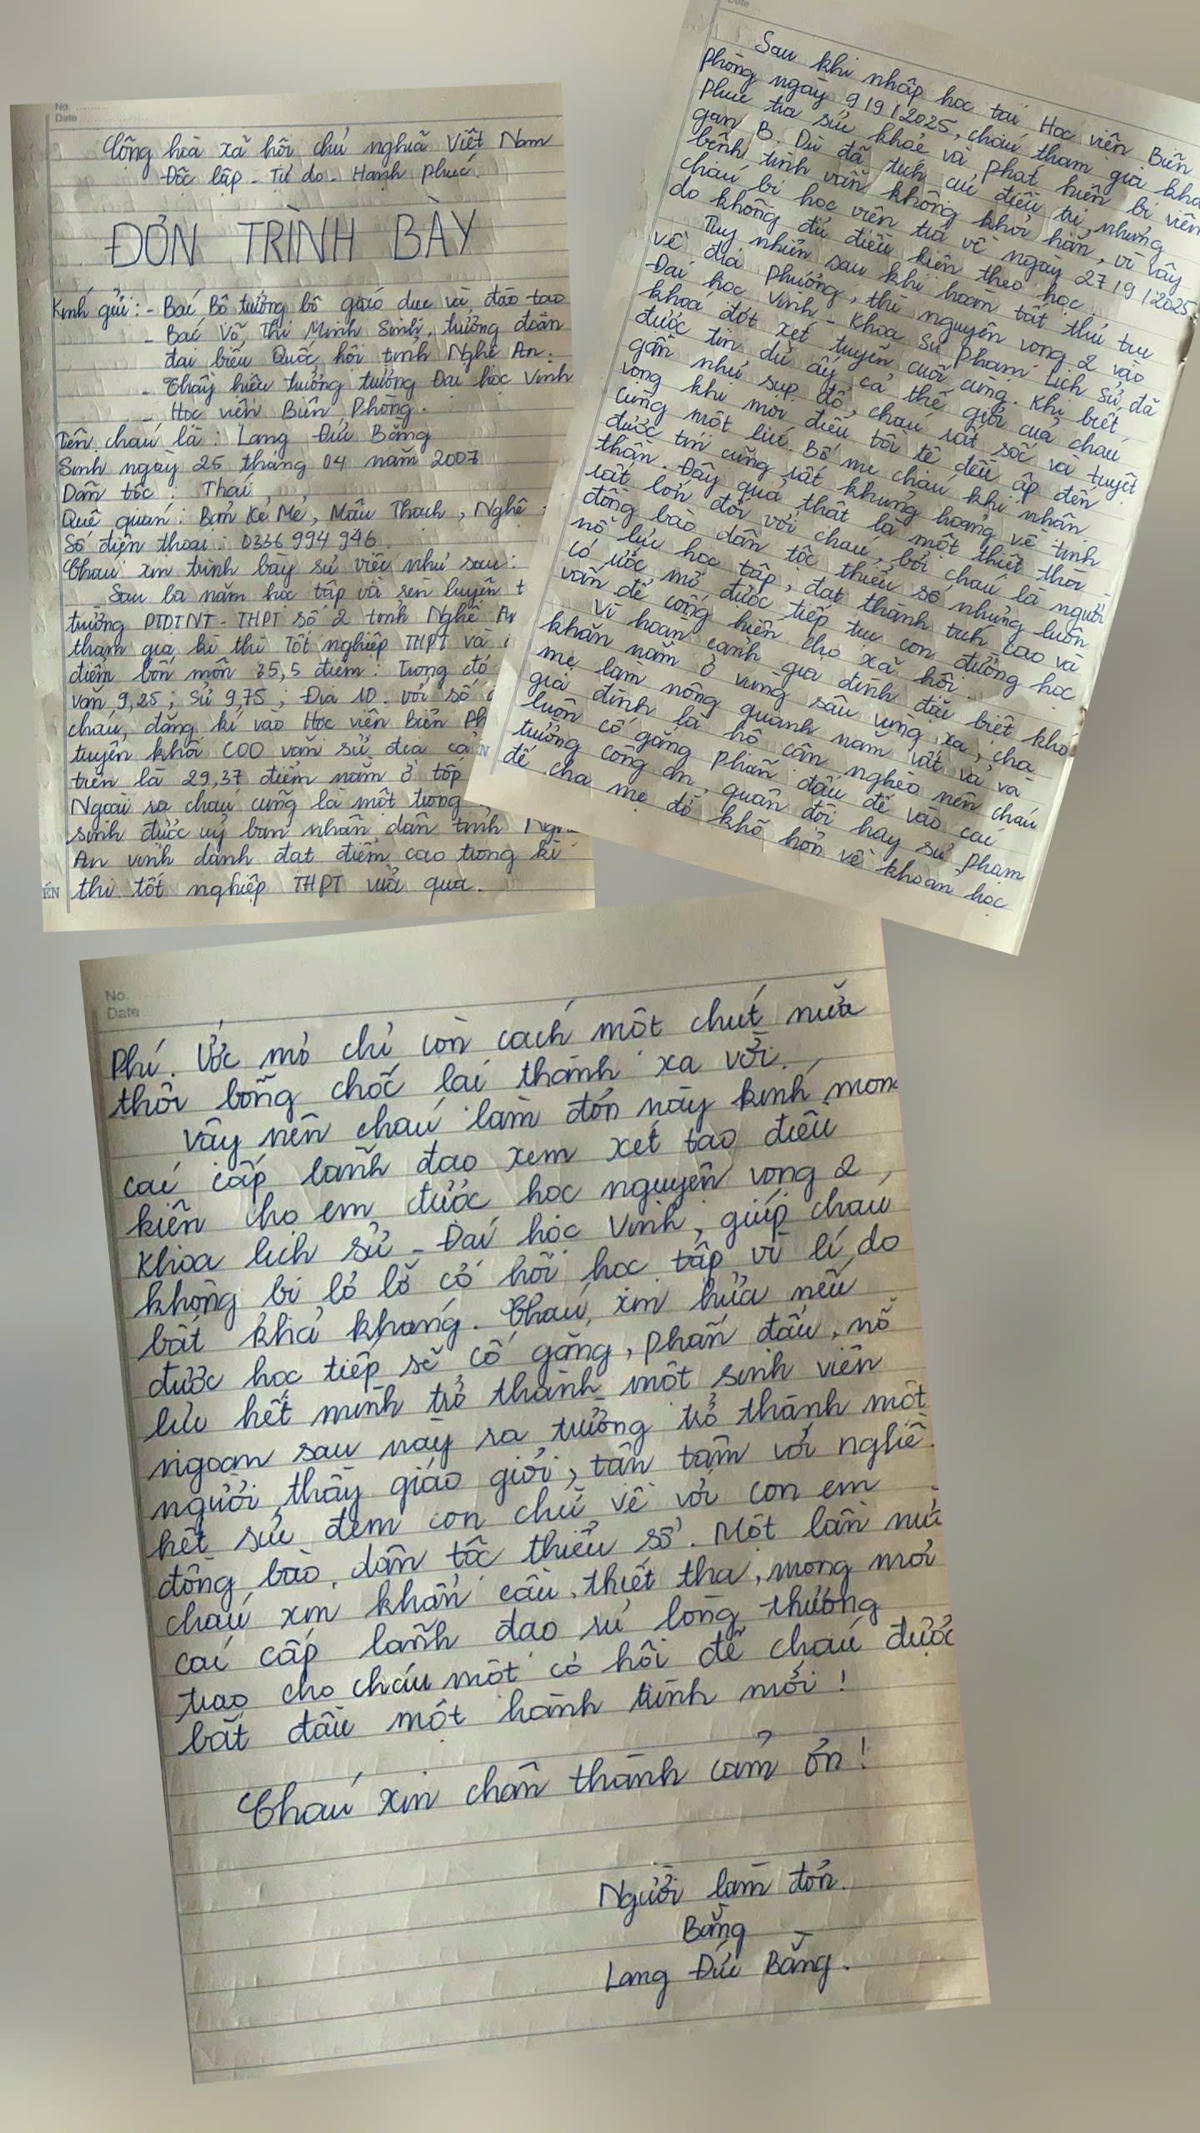 No.
Date
Cộng hoà xã hội chủ nghĩa Việt Nam
Độc lập - Tự do - Hạnh phúc.
ĐƠN TRÌNH BÀY
Kính gửi: - Bác Bộ trưởng bộ giáo dục và đào tạo
- Bác Võ Thị Minh Sinh, trưởng đoàn
đại biểu Quốc hội tỉnh Nghệ An.
- Thầy hiệu trưởng trường Đại học Vinh
- Học viện Biên Phòng.
Tên cháu là: Lang Đức Bằng
Sinh ngày 25 tháng 04 năm 2007
Dân tộc: Thái
Quê quán: Bản Kẻ Mẻ, Mậu Thạch, Nghệ
Số điện thoại: 0336 994 946
Cháu xin trình bày sự việc như sau:
Sau ba năm học tập và rèn luyện t
trường PTDTNT - THPT số 2 tỉnh Nghệ An
tham gia kì thi Tốt nghiệp THPT và
điểm bốn môn 35,5 điểm: Trong đó
văn 9,25; Sử 9,75; Địa 10. với số
cháu, đăng kí vào Học viện Biên Ph
tuyển khối C00 văn sử địa
trên là 29,37 điểm nằm ở tốp
Ngoài ra cháu cũng là một trong
sinh được uỷ ban nhân dân tỉnh Ngh
An vinh danh đạt điểm cao trong kì
thi tốt nghiệp THPT vừa qua.
Date
Sau khi nhập học tại Học viện Biên
Phòng ngày 9/9/2025, cháu tham gia khá
phúc tra sức khoẻ và phát hiện bị viêm
gan B. Dù đã tích cực điều trị nhưng
bệnh tình vẫn không khỏi hẳn, vì vậy
cháu bị học viện trả về ngày 27/9/2025
do không đủ điều kiện theo học.
Tuy nhiên sau khi hoàn tất thủ tục
về địa phương, thì nguyện vọng 2 vào
Đại học Vinh - Khoa Sư Phạm Lịch Sử đã
khoá đợt xét tuyển cuối cùng. Khi biết
được tin dữ ấy cả thế giới của cháu
gần như sụp đổ, cháu rất sốc và tuyệt
vọng khi mọi điều tồi tệ đều ập đến
cùng một lúc. Bố mẹ cháu khi nhận
được tin cũng rất khủng hoảng về tinh
thần. Đây quả thật là một thiệt thòi
rất lớn đối với cháu, bởi cháu là người
đồng bào dân tộc thiểu số nhưng luôn
nỗ lực học tập, đạt thành tích cao và
có ước mơ được tiếp tục con đường học
vấn để cống hiến cho xã hội.
Vì hoàn cảnh gia đình đặc biệt khó
khăn nằm ở vùng sâu vùng xa, cha
mẹ làm nông quanh năm vất vả và
gia đình là hộ cận nghèo nên cháu
luôn cố gắng phấn đấu để vào các
trường công an, quân đội hay sư phạm
để cha mẹ đỡ khổ hơn về khoản học
No.
Date
Phí. Ước mơ chỉ còn cách một chút nữa
thôi bỗng chốc lại thành xa vời.
Vậy nên cháu làm đơn này kính mong
các cấp lãnh đạo xem xét tạo điều
kiện cho em được học nguyện vọng 2
Khoa lịch sử - Đại học Vinh, giúp cháu
không bị lỡ lỡ cơ hội học tập vì lí do
bất khả kháng. Cháu xin hứa nếu
được học tiếp sẽ cố gắng, phấn đấu, nỗ
lực hết mình trở thành một sinh viên
ngoan sau này ra trường trở thành một
người thầy giáo giỏi, tận tâm với nghề.
hết sức đem con chữ về với con em
đồng bào dân tộc thiểu số. Một lần nữa
cháu xin khẩn cầu, thiết tha, mong mỏi
các cấp lãnh đạo rủ lòng thương
trao cho cháu một cơ hội để cháu được
bắt đầu một hành trình mới!
Cháu xin chân thành cảm ơn!
Người làm đơn.
Bằng
Lang Đức Bằng.